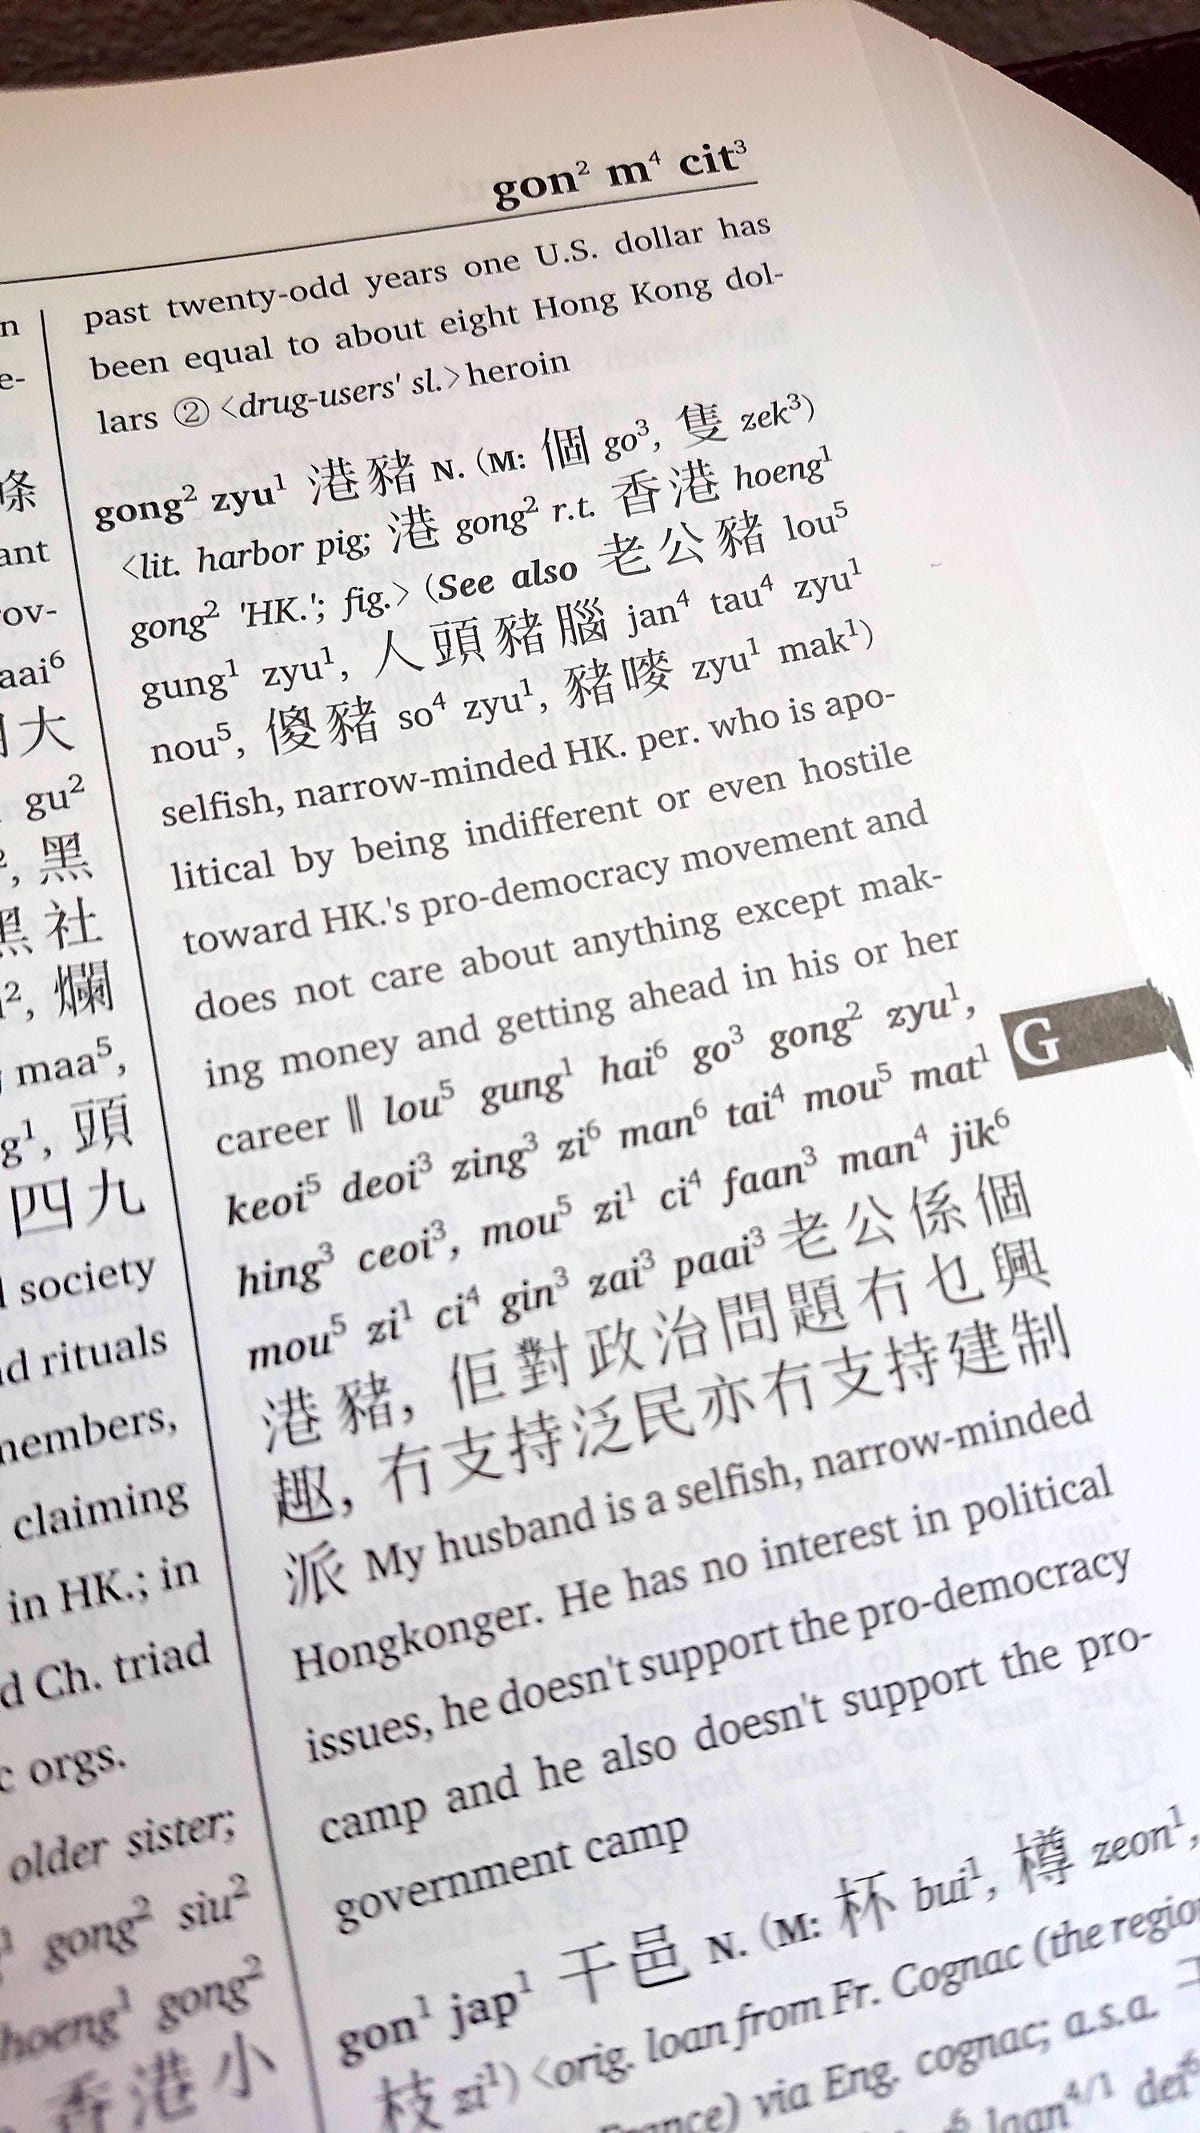 gon² m⁴ cit³
n
e-
條
ant
rov-
aai⁶
大
gu²
², 黑
黑社
², 爛
maa⁵,
g¹, 頭
四九
society
nd rituals
members,
claiming
in HK.; in
d Ch. triad
c orgs.
older sister;
gong² siu²
hoeng¹ gong²
香港小
past twenty-odd years one U.S. dollar has
been equal to about eight Hong Kong dol-
lars ② <drug-users' sl.> heroin
gong² zyu¹ 港豬 N. (M: 個 go³, 隻 zek³)
<lit. harbor pig; 港 gong² r.t. 香港 hoeng¹
gong² 'HK.'; fig.> (See also 老公豬 lou⁵
gung¹ zyu¹, 人頭豬腦 jan⁴ tau⁴ zyu¹
nou⁵, 傻豬 so⁴ zyu¹, 豬嘜 zyu¹ mak¹)
selfish, narrow-minded HK. per. who is apo-
litical by being indifferent or even hostile
toward HK.'s pro-democracy movement and
does not care about anything except mak-
ing money and getting ahead in his or her
career ‖ lou⁵ gung¹ hai⁶ go³ gong² zyu¹,
keoi⁵ deoi³ zing³ zi⁶ man⁶ tai⁴ mou⁵ mat¹
hing³ ceoi³, mou⁵ zi¹ ci⁴ faan³ man⁴ jik⁶
mou⁵ zi¹ ci⁴ gin³ zai³ paai³ 老公係個
港豬, 佢對政治問題冇乜興
趣, 冇支持泛民亦冇支持建制
派 My husband is a selfish, narrow-minded
Hongkonger. He has no interest in political
issues, he doesn't support the pro-democracy
camp and he also doesn't support the pro-
government camp
gon¹ jap¹ 干邑 N. (M: 杯 bui¹, 樽 zeon¹,
枝 zi¹) <orig. loan from Fr. Cognac (the regio
France) via Eng. cognac; a.s.a.
laan⁴/¹ dei⁶
G